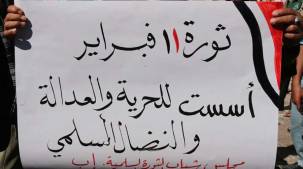 ثورة ١١ فبراير
أسست للحرية والعدالة
والنضال السلمي
مجلس شباب الثورة السلمية . اب